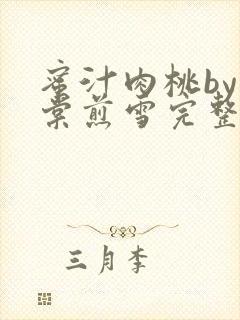 蜜汁肉桃by
棠煎雪完整
三月李